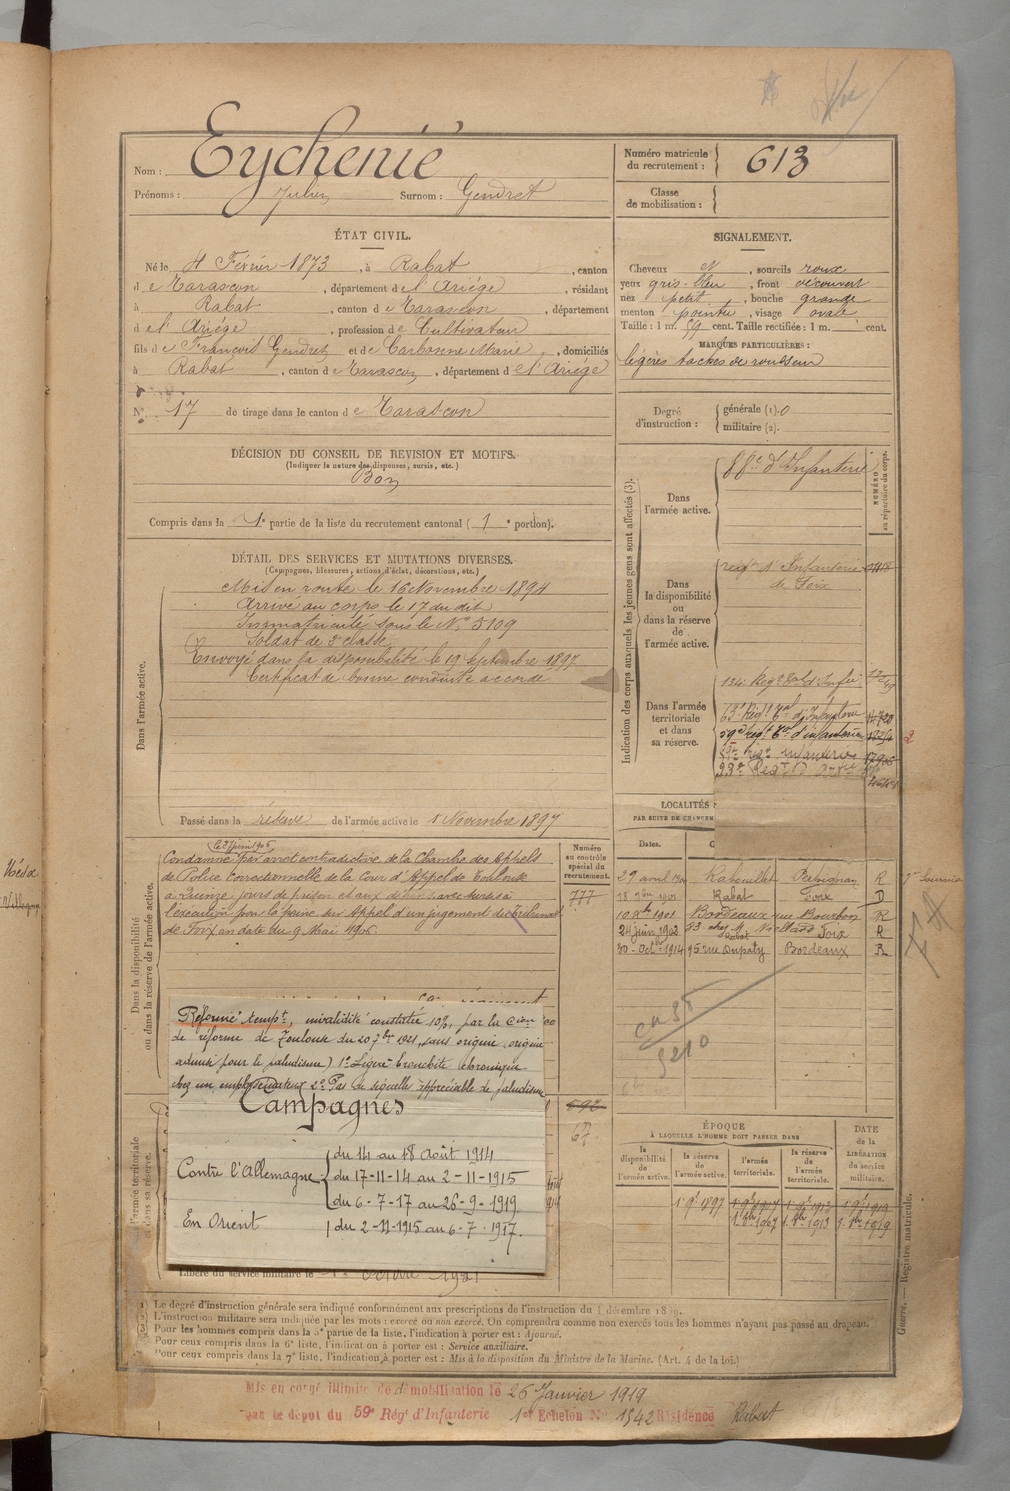 Nom : Eychenié
Prénoms : Julien Surnom : Gendret
Numéro matricule du recrutement : 613
Classe de mobilisation :
ÉTAT CIVIL.
Né le 4 Février 1873, à Rabat, canton
de Tarascon, département de l'Ariége, résidant
à Rabat, canton de Tarascon, département
de l'Ariége, profession de Cultivateur
fils de François Gendret et de Carbonne Marie, domiciliés
à Rabat, canton de Tarascon, département de l'Ariége
N° 17 de tirage dans le canton de Tarascon
SIGNALEMENT.
Cheveux N, sourcils roux
yeux gris-bleu, front découvert
nez petit, bouche grande
menton pointu, visage ovale
Taille : 1 m. 59 cent. Taille rectifiée : 1 m. cent.
MARQUES PARTICULIÈRES :
légères taches de rousseur
Degré d'instruction : générale (1). 0
militaire (2).
DÉCISION DU CONSEIL DE REVISION ET MOTIFS.
(Indiquer la nature des dispenses, sursis, etc.)
Bon
Compris dans la 1e partie de la liste du recrutement cantonal ( 1e portion).
DÉTAIL DES SERVICES ET MUTATIONS DIVERSES.
(Campagnes, blessures, actions d'éclat, décorations, etc.)
Dans l'armée active.
Mis en route le 16 Novembre 1894
Arrivé au corps le 17 du dit
Immatriculé sous le N° 5109
Soldat de 2e classe
Envoyé dans la disponibilité le 19 Septembre 1897
Certificat de bonne conduite accordé
Passé dans la réserve de l'armée active le 1 Novembre 1897
Indication des corps auxquels les jeunes gens sont affectés (3).
NUMÉRO au répertoire du corps.
Dans l'armée active.
88e d'Infanterie
Dans la disponibilité ou dans la réserve de l'armée active.
régt d'Infanterie
de Foix
Dans l'armée territoriale et dans sa réserve.
134e Regt Tal d'Infie
63e Régt Tal d'Infanterie
59e régt Tal d'infanterie
LOCALITÉS
PAR SUITE DE CHANGEM
Dates.
29 avril Rabouillet Perpignan R
18 1901 Rabat Foix D
10 1901 Bordeaux rue Bourbon R
24 juin 1902 Rabat Foix R
30 Octbre 1914 95 rue Dupaty Bordeaux R
Dans la disponibilité ou dans la réserve de l'armée active.
Numéro au contrôle spécial du recrutement.
777
Condamné par arret contradictoire de la Chambre des Appels
de Police Correctionnelle de la Cour d'Appel de Toulouse
à Quinze jours de prison et aux dépens avec sursis à
l'exécution pour la peine sur Appel d'un jugement du Tribunal
de Foix en date du 9 Mai 1906.
Réformé tempt, invalidité constatée 10%, par la Cion
de réforme de Toulouse du 20 7bre 1921, sans origine (origine
admise pour le paludisme) 1° Légère bronchite chronique
chez un emphysémateux 2° Pas de séquelle appréciable de paludisme
Campagnes
Contre l'Allemagne
du 14 au 18 Août 1914
du 17-11-14 au 2-11-1915
du 6-7-17 au 26-9-1919
En Orient du 2-11-1915 au 6-7-1917.
l'armée territoriale et dans sa réserve.
692
Libéré du service militaire le 1er Octobre 1921
ÉPOQUE
À LAQUELLE L'HOMME DOIT PASSER DANS
la disponibilité de l'armée active.
la réserve de l'armée active.
l'armée territoriale.
la réserve de l'armée territoriale.
DATE de la LIBÉRATION du service militaire.
1 9bre 1897
Guerre. — Registre matricule.
(1) Le degré d'instruction générale sera indiqué conformément aux prescriptions de l'instruction du 4 décembre 1889.
(2) L'instruction militaire sera indiquée par les mots : exercé ou non exercé. On comprendra comme non exercés tous les hommes n'ayant pas passé au drapeau.
(3) Pour les hommes compris dans la 5e partie de la liste, l'indication à porter est : Ajourné.
Pour ceux compris dans la 6e liste, l'indication à porter est : Service auxiliaire.
Pour ceux compris dans la 7e liste, l'indication à porter est : Mis à la disposition du Ministre de la Marine. (Art. 4 de la loi.)
Mis en congé illimité de démobilisation le 26 Janvier 1919
par le dépôt du 59e Régt d'Infanterie 1er Echelon N° 1542 Résidence Rabat